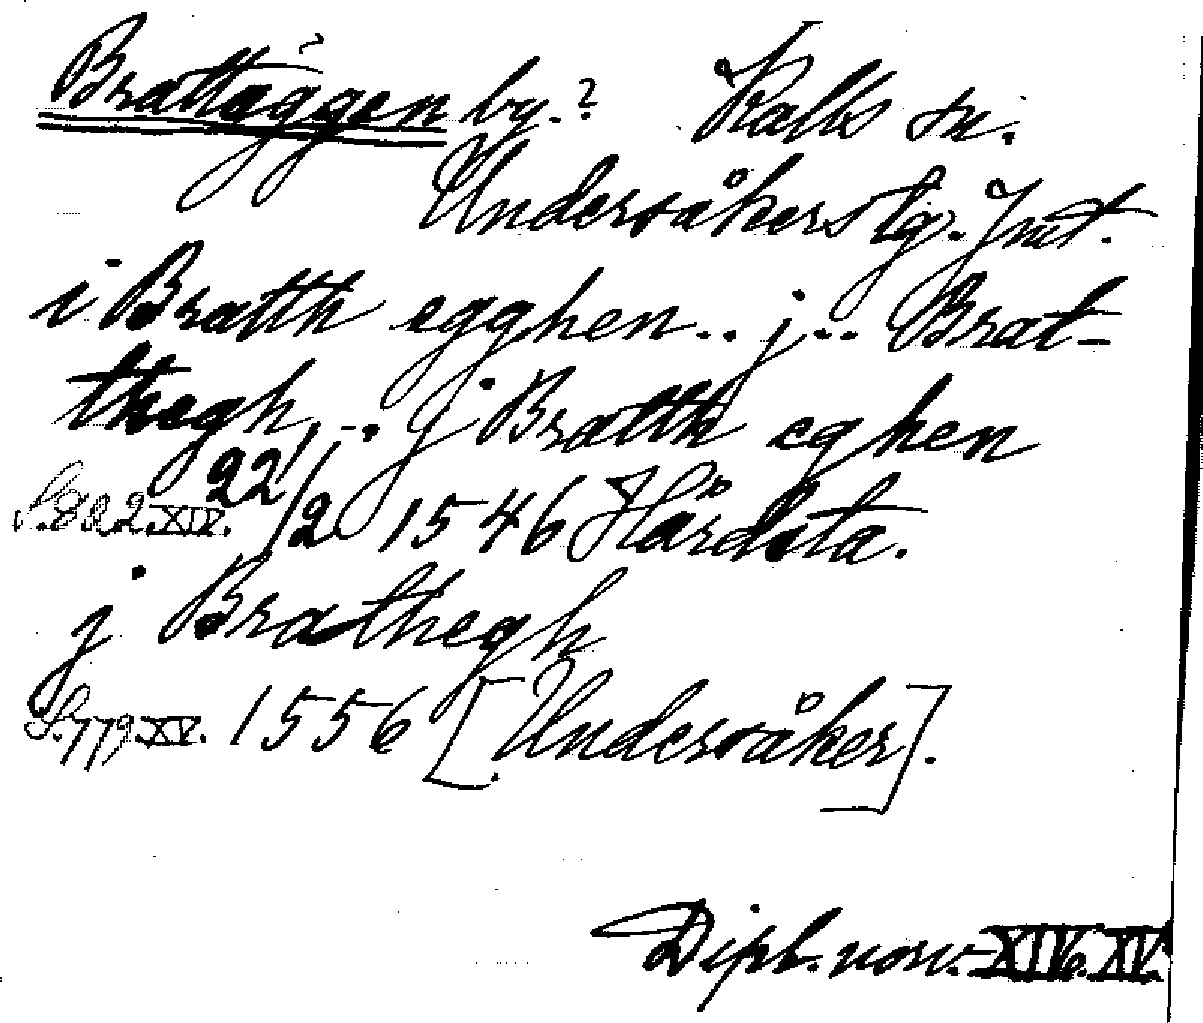 Brattäggen by.? Kalls sn.
Undersåkers tg. Jmt.
i Bratth egghen.. j... Brat-
thegh... j Bratth eghen
S. 822 XIV. 22/2 1546 Hårdsta.
j Brathegh
S. 779 XV. 1556 [Undersåker].
Dipl. norv. XIV o. XV.